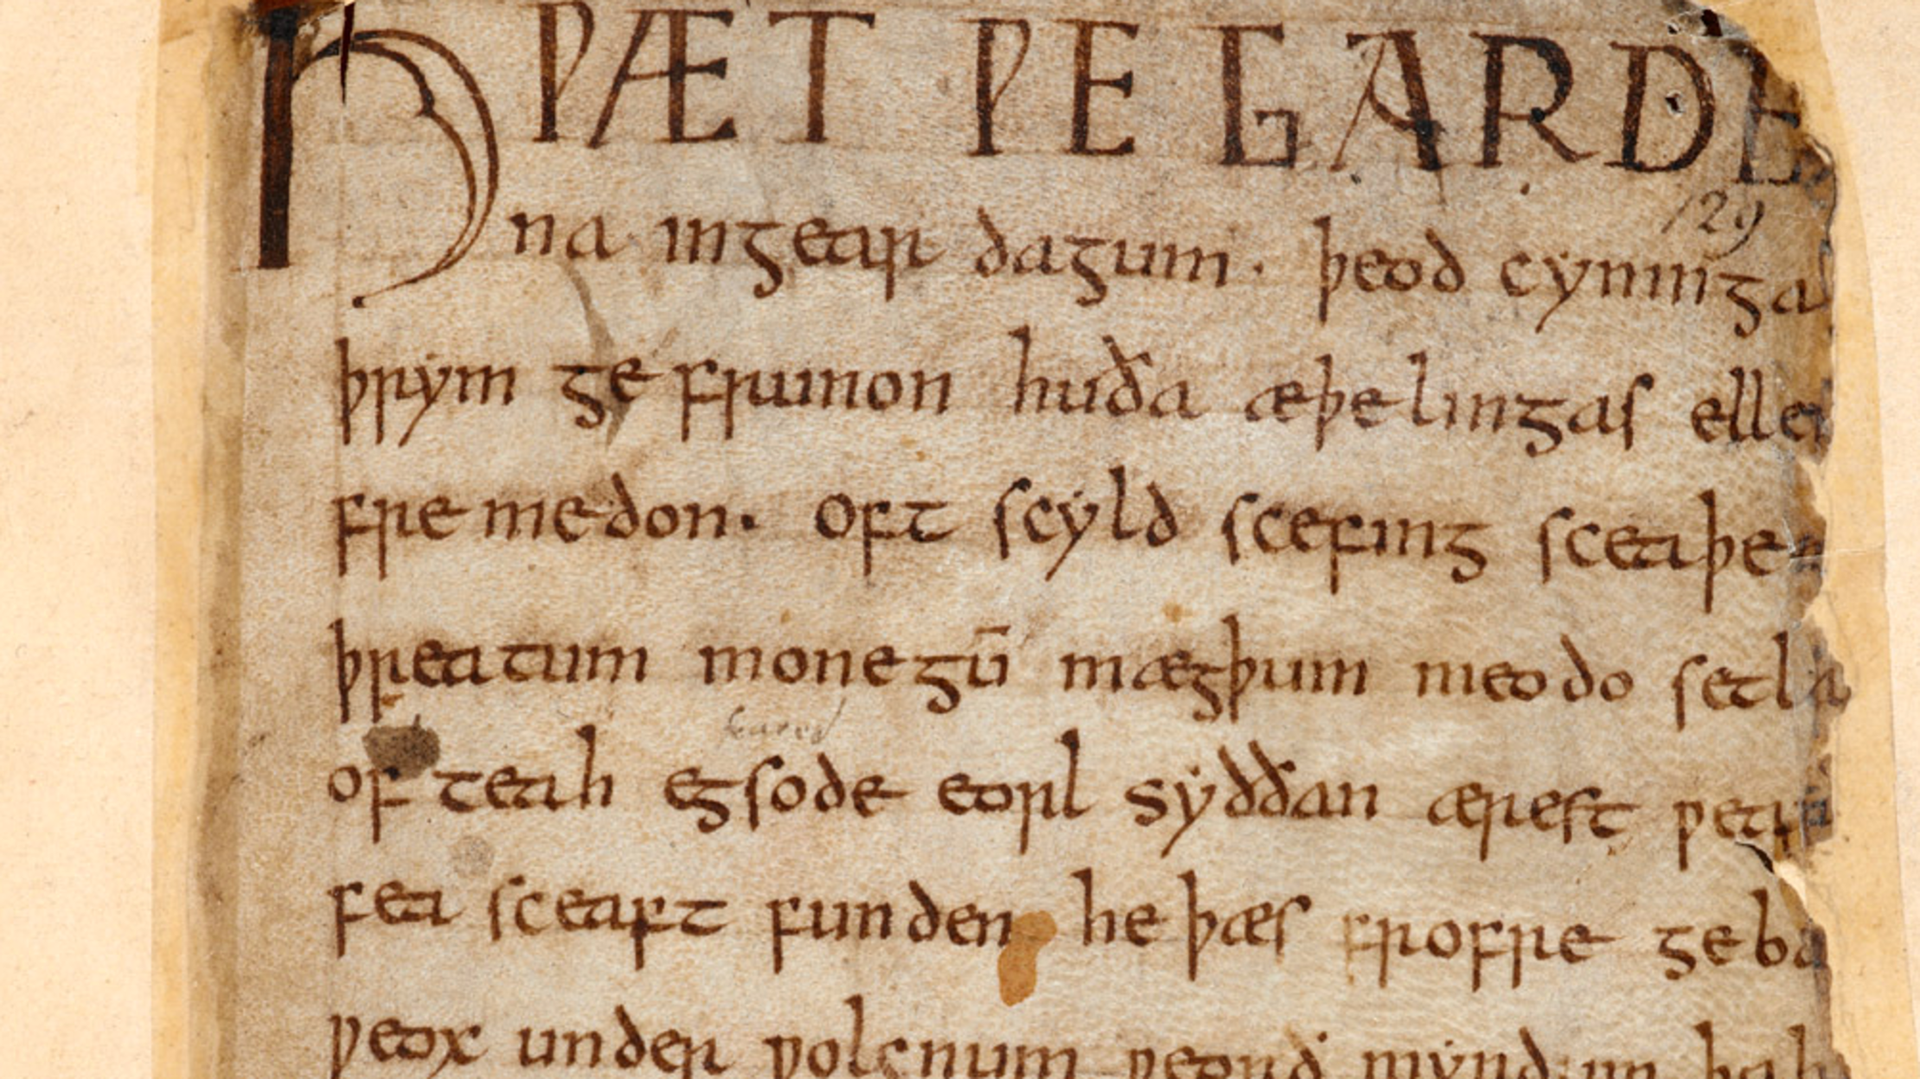 HǷÆT ǷE GARDE
129
na ingear dagum. þeod cyninga
þrym ge frunon huða æþelingas ellen
fre medon. oft scyld scefing sceaþe
þreatum monegū mægþum meodo setla
of teah egsode eorl syððan ærest ƿear
fea sceaft funden he þæs frofre geba
ƿeox under ƿolcnum ƿeorð myndum þah